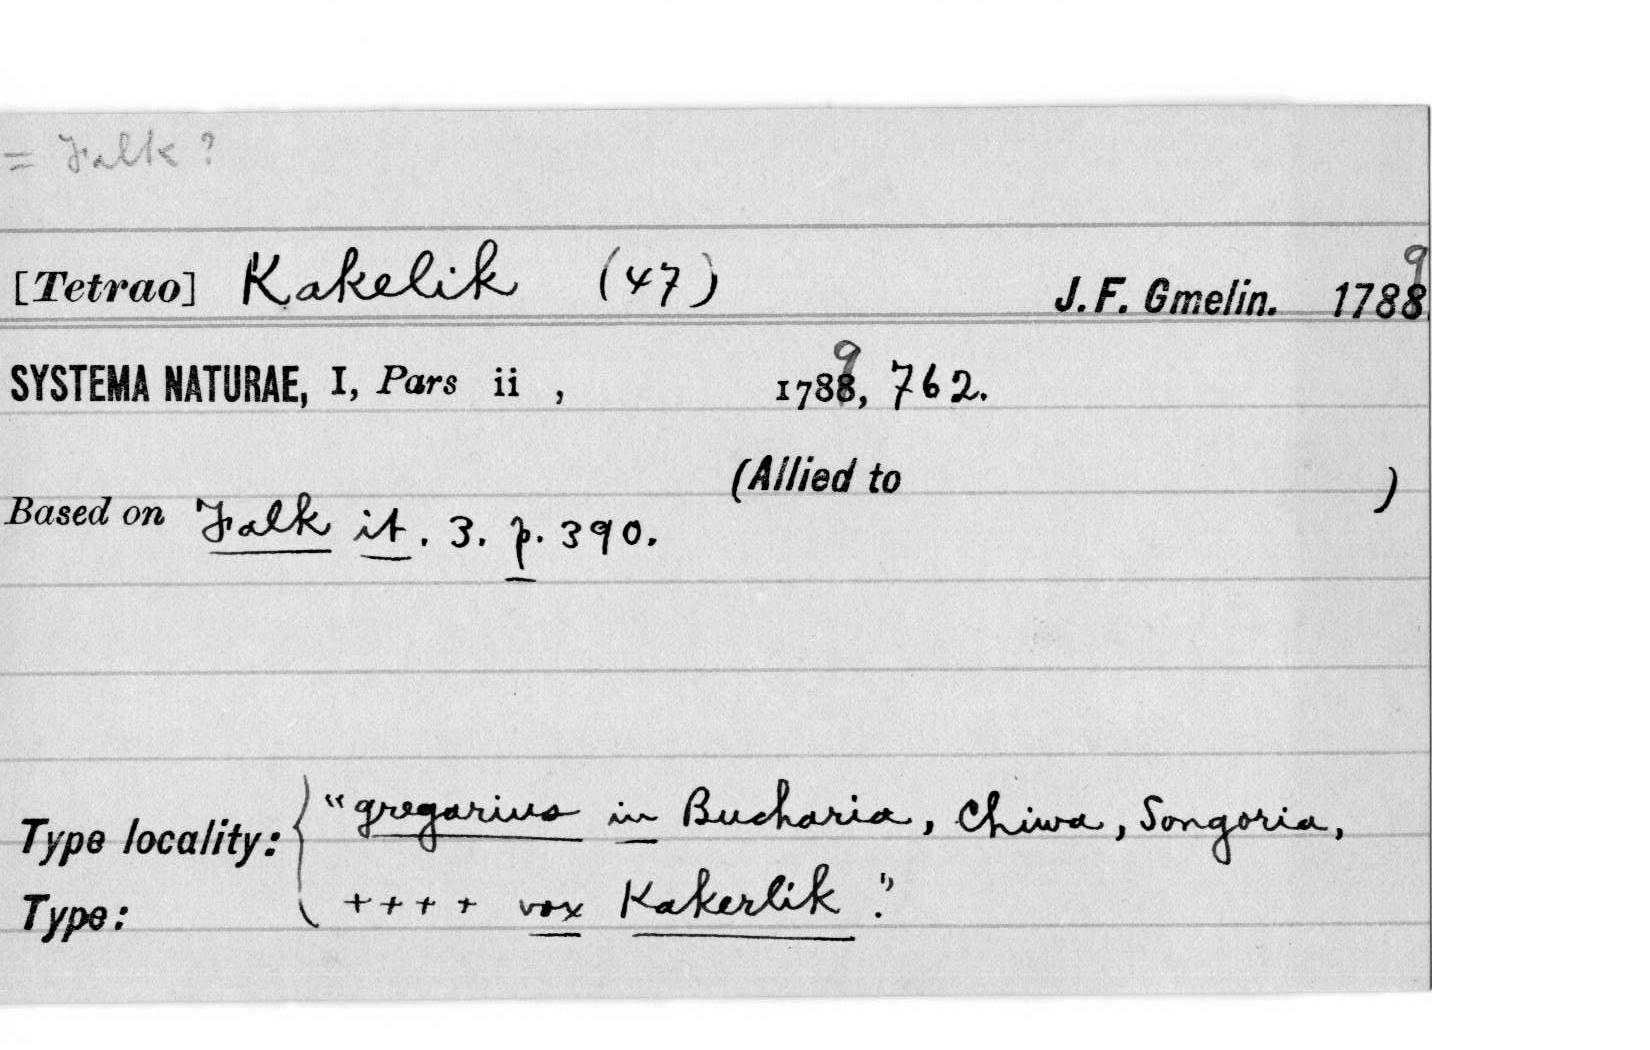 = Falk ?
[Tetrao] Kakelik (47) J. F. Gmelin. 1788 9
SYSTEMA NATURAE, I, Pars ii , 1788 9, 762.
(Allied to )
Based on Falk it. 3. p. 390.
Type locality: { "gregarius in Bucharia, Chiwa, Songoria,
Type: ++++ vox Kakerlik."